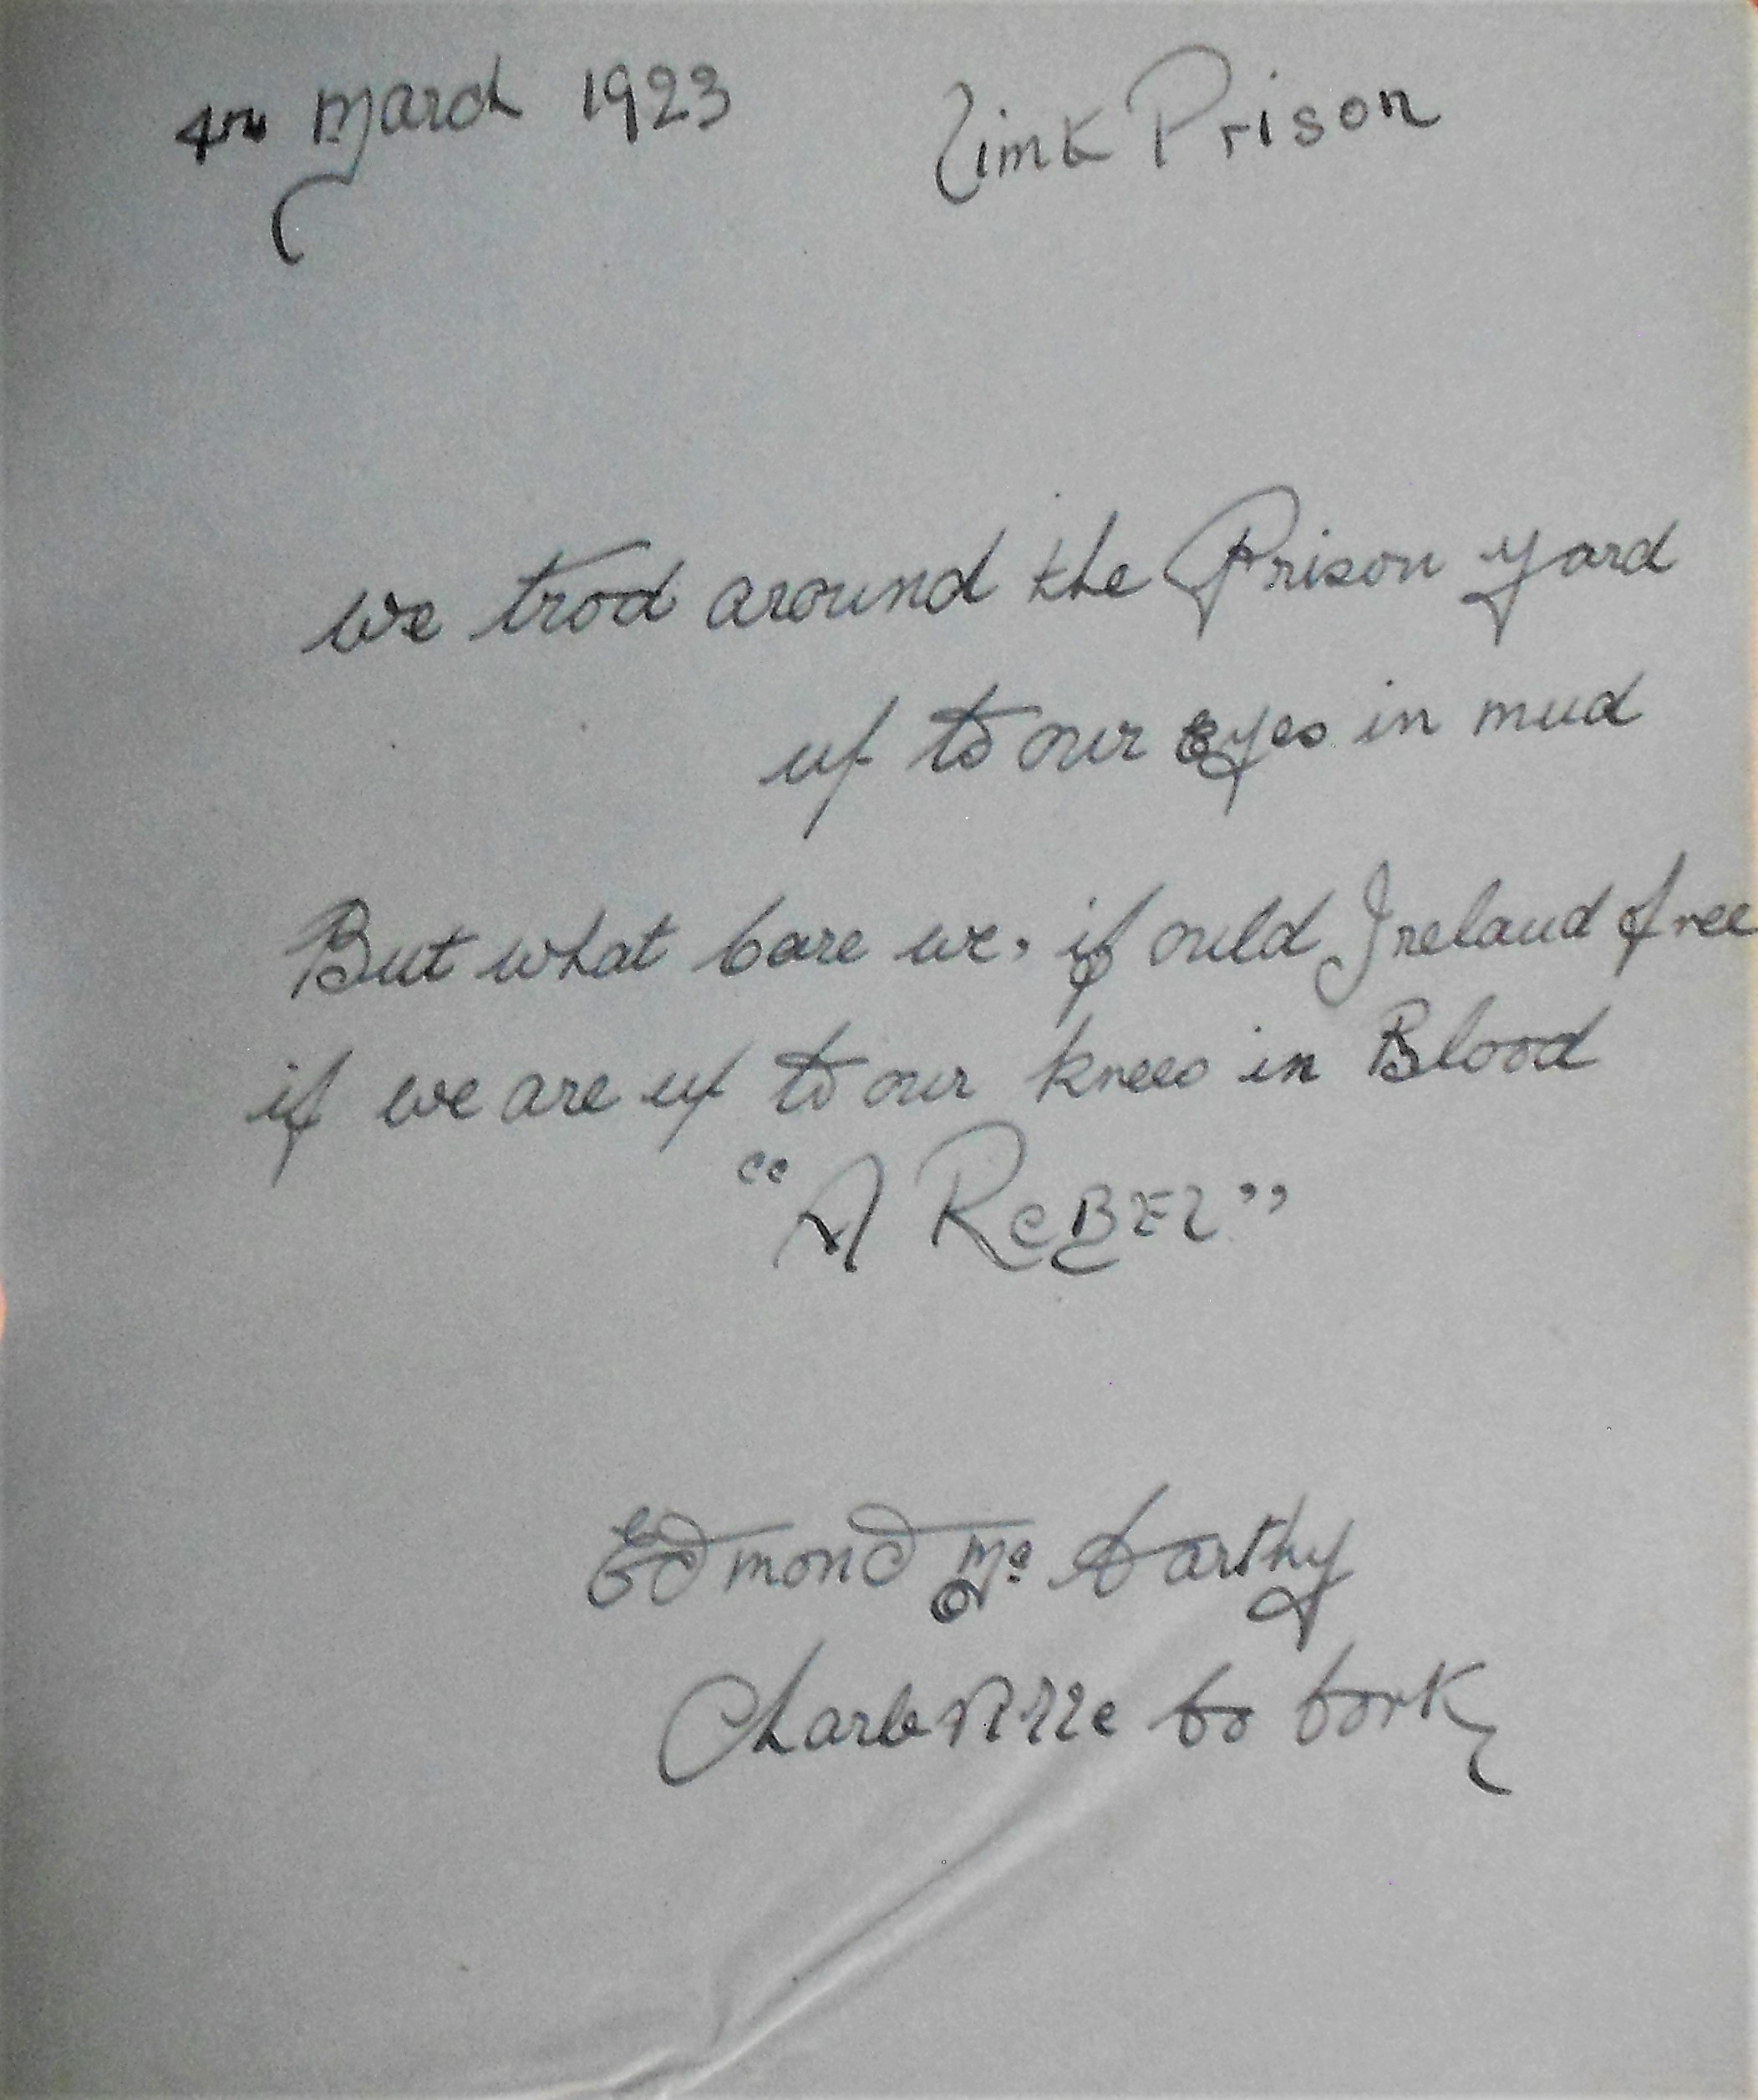 4TH March 1923 Limk Prison
We trod around the Prison Yard
up to our Eyes in mud
But what Care we, if ould Ireland free
if we are up to our knees in Blood
"A ReBEL"
Edmond Mc Carthy
Charleville Co Cork